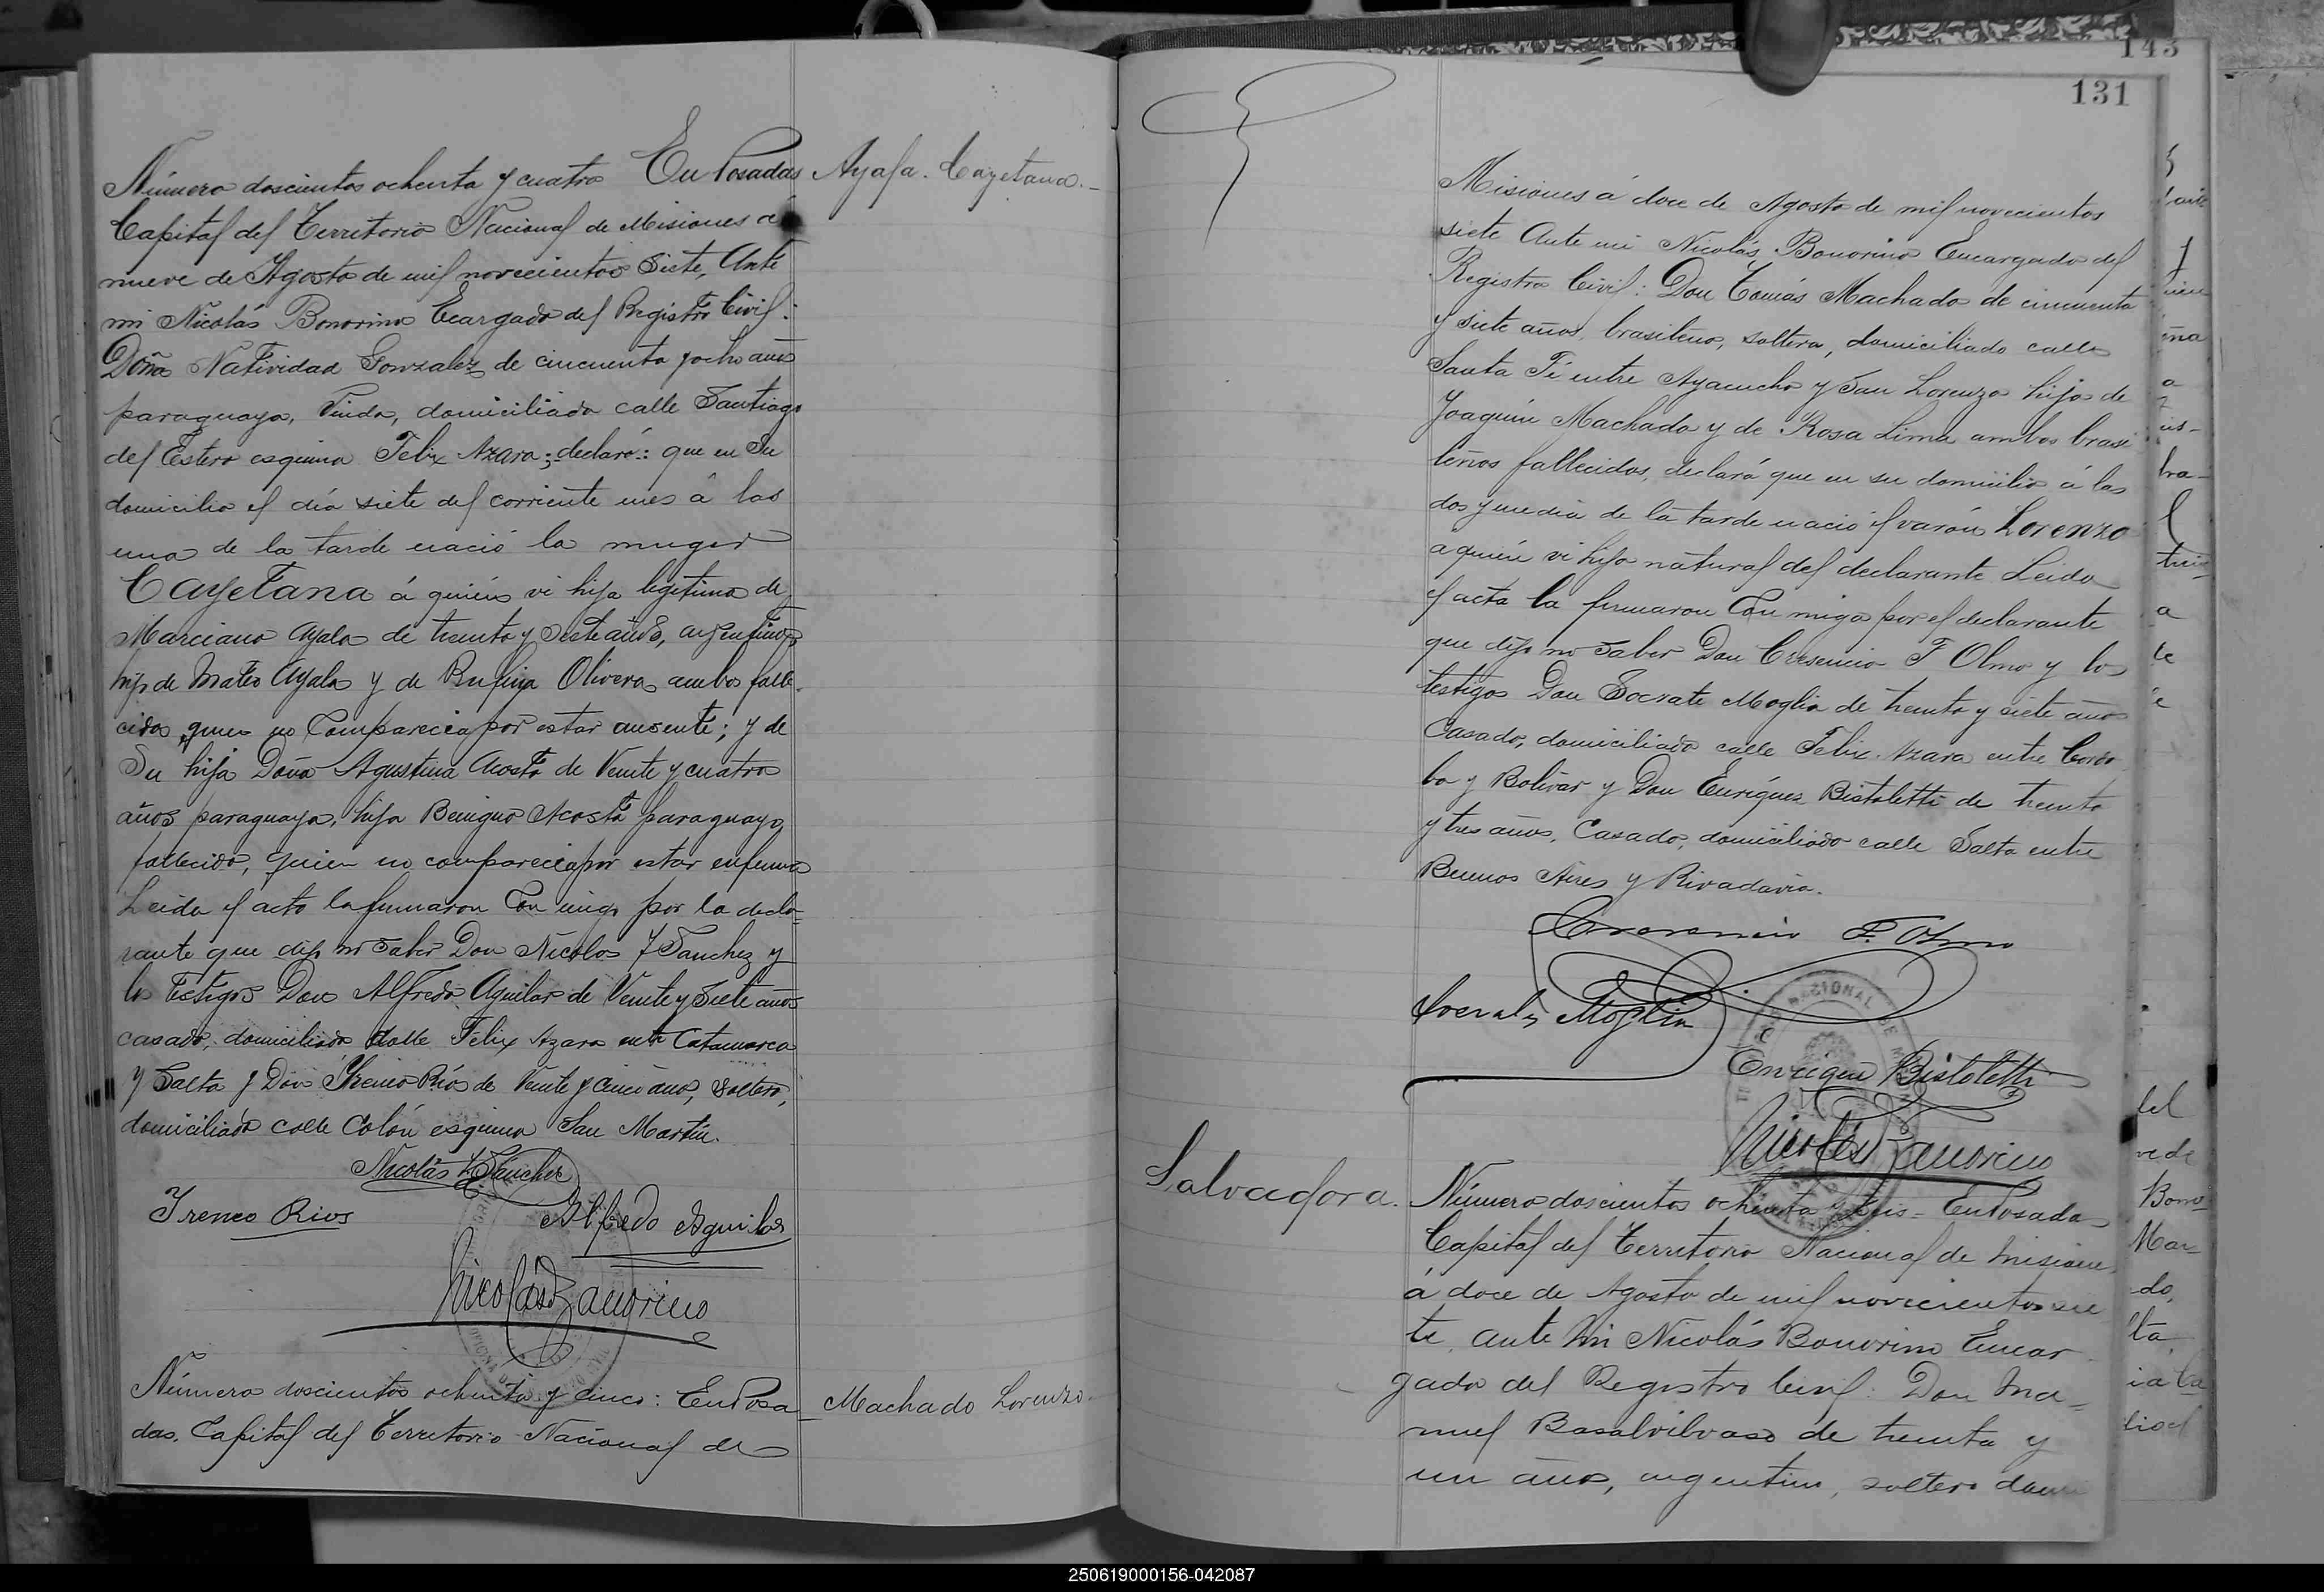 Número doscientos ochenta y cuatro En Posadas
Ayala. Cayetana.-
Capital del Territorio Nacional de Misiones á
nueve de Agosto de mil novecientos siete, Ante
mi Nicolás Bonorino Ecargado del Registro Civil:
Doña Natividad Gonzalez de cincuenta y ocho años
paraguaya, Viuda, domiciliada calle Santiago
del Estero esquina Felix Azara; declaró: que en Su
domicilio el día siete del corriente mes á las
una de la tarde nació la muger
Cayetana á quién vi hija legitima de
Marciano Ayala de treinta y siete años, argentino,
hijo de Mateo Ayala y de Rufina Olivera ambos falle-
cidos quien no Comparecia por estar ausente; y de
Su hija Doña Agustina Acosta de Veinte y cuatro
años paraguaya, hija Benigno Acosta paraguayo
fallecido, quien no comparecia por estar enferma
Leida el acta la firmaron Con migo por la decla-
rante que dijo no saber Don Nicolas Sanchez y
los Testigos Don Alfredo Aguilar de Veinte y Siete años
casado, domiciliado Calle Felix Azara entre Catamarca
y Salta y Don Ireneo Ríos de Veinte y cinco años, Soltero,
domiciliado calle Colón esquina San Martín.
Nicolás Sánchez
Ireneo Rios
Alfredo Aguilar
Nicolás Bonorino
Número doscientos ochenta y cinco: En Posa-
Machado Lorenzo.
das, Capital del Territorio Nacional de
143
131
Misiones á doce de Agosto de mil novecientos
siete Ante mi Nicolás Bonorino Encargado del
Registro Civil: Don Tomás Machado de cincuenta
y siete años, brasileño, soltero, domiciliado calle
Santa Fé entre Ayacucho y San Lorenzo hijo de
Joaquín Machado y de Rosa Lima ambos brasi
leños fallecidos, declaró que en su domicilio á las
dos y media de la tarde nació el varón Lorenzo
a quién vi hijo natural del declarante Leida
el acta la firmaron Con migo por el declarante
que dijo no saber Don Cresencio F Olmo y los
testigos Don Socrate Moglia de treinta y siete años
Casado, domiciliado calle Felix Azara entre Cordo
ba y Bolívar y Don Enríquez Bistoletti de treinta
y tres años, Casado, domiciliado calle Salta entre
Buenos Aires y Rivadavia.
Cresencio F. Olmo
Socrates Moglia
Enrique Bistoletti
Nicolás Bonorino
Salvadora.
Número doscientos ochenta y seis - En Posadas
Capital del Territorio Nacional de Misiones
á doce de Agosto de mil novecientos sie
te, ante mi Nicolás Bonorino Encar
gado del Registro Civil: Don Ma-
nuel Basalvilvaso de treinta y
un años, argentino, soltero domi
250619000156-042087